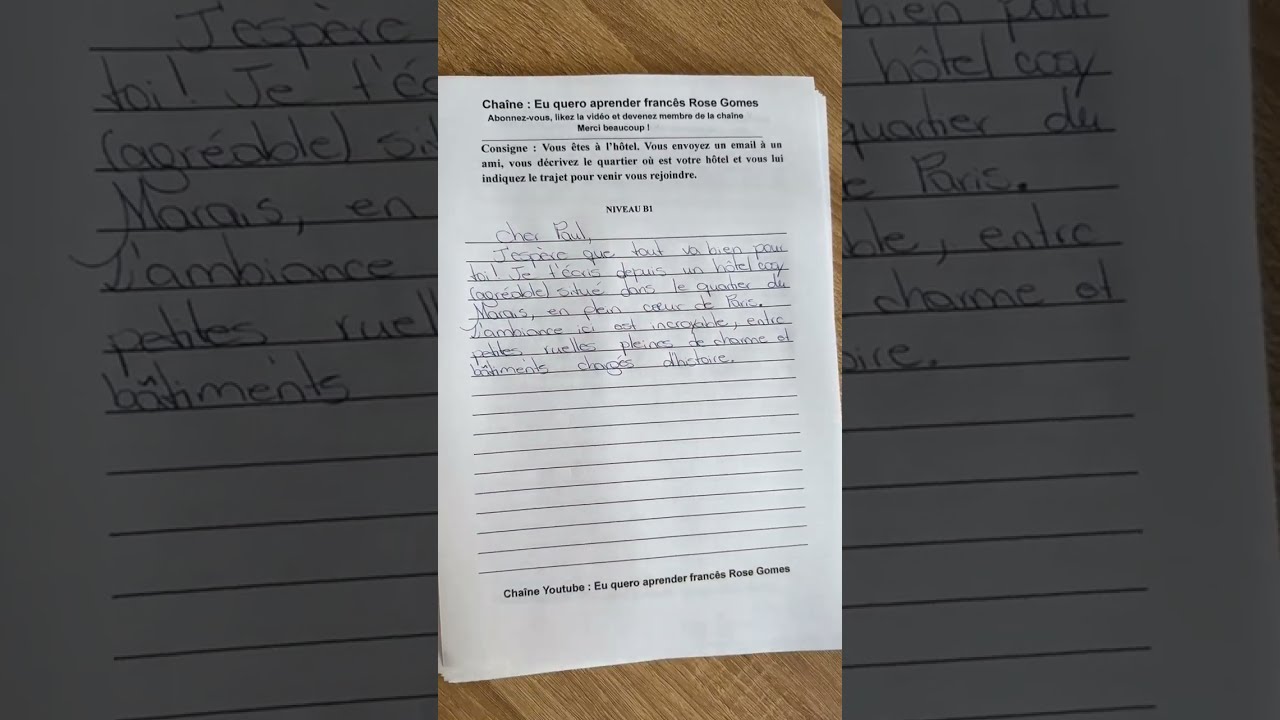 Chaîne : Eu quero aprender francês Rose Gomes
Abonnez-vous, likez la vidéo et devenez membre de la chaîne
Merci beaucoup !
Consigne : Vous êtes à l'hôtel. Vous envoyez un email à un
ami, vous décrivez le quartier où est votre hôtel et vous lui
indiquez le trajet pour venir vous rejoindre.
NIVEAU B1
Cher Paul,
J'espère que tout va bien pour
toi! Je t'écris depuis un hôtel cosy
(agréable) situé dans le quartier du
Marais, en plein cœur de Paris.
L'ambiance ici est incroyable, entre
petites ruelles pleines de charme et
bâtiments chargés d'histoire.
Chaîne Youtube : Eu quero aprender francês Rose Gomes